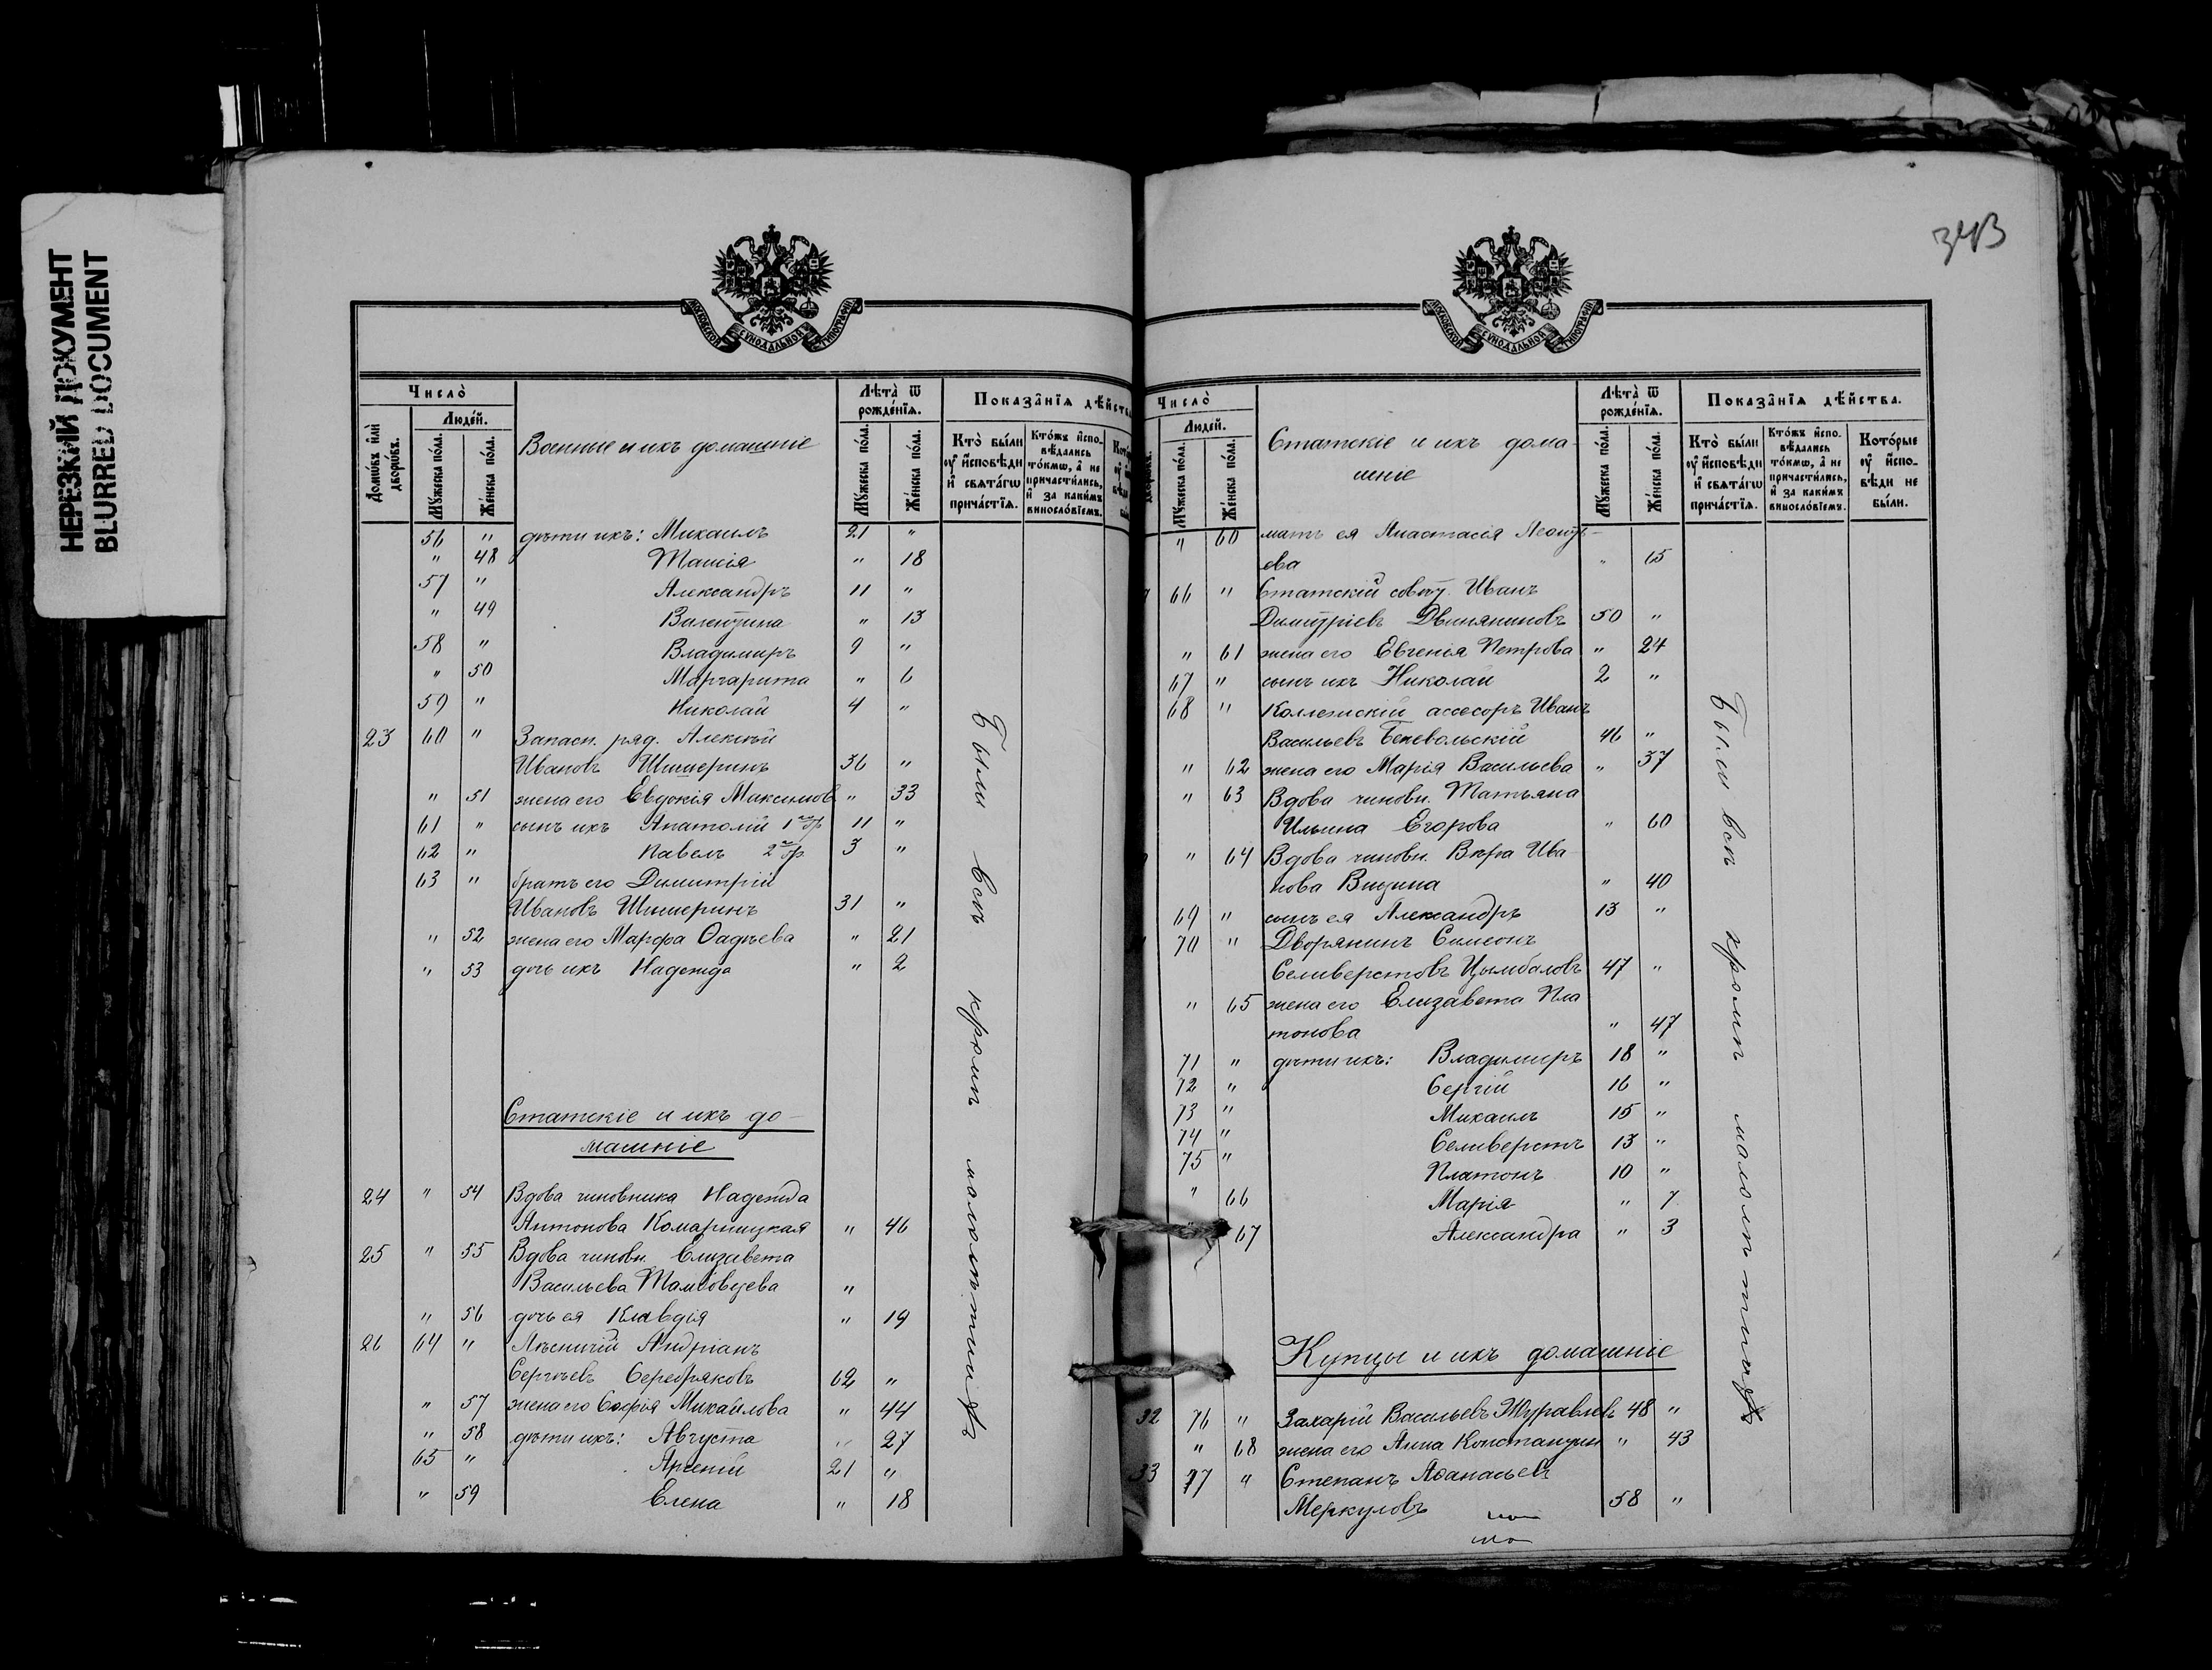 НЕРЕЗКИЙ ДОКУМЕНТ
BLURRED DOCUMENT
МОСКОВСКОЙ СѴНОДАЛЬНОЙ ТИПОГРАФІИ
Число̀
Домѡвъ и҆лѝ дворѡвъ.
Люде́й.
Мꙋ́жеска по́ла.
Же́нска по́ла.
Военные и ихъ домашніе
Лѣта̀ ѿ рожде́нїѧ.
Мꙋ́жеска по́ла.
Же́нска по́ла.
Показа̑нїѧ дѣ́йства
Кто̀ бы́ли оу҆ и҆сповѣди и҆ свѧта́гѡ прича́стїѧ.
Кто́жъ и҆спо-вѣдались то́кмѡ, а҆ не причасти́лись, и҆ за каки́мъ винословїемъ.
56 " дѣти ихъ: Михаилъ 21 "
" 48 Таисія " 18
57 " Александръ 11 "
" 49 Валентина " 13
58 " Владимиръ 9 "
" 50 Маргарита " 6
59 " Николай 4 "
23 60 " Запасн. ряд. Алексѣй
Ивановъ Шишеринъ 36 "
" 51 жена его Евдокія Максимов " 33
61 " сынъ ихъ Анатолій 1го бр 11 "
62 " Павелъ 2го бр. 3 "
63 " братъ его Димитрій
Ивановъ Шишеринъ 31 "
" 52 жена его Марфа Ѳадѣева " 21
" 53 дочь ихъ Надежда " 2
Статскіе и ихъ до-
машніе
24 " 54 Вдова чиновника Надежда
Антонова Комарницкая " 46
25 " 55 Вдова чиновн. Елизавета
Васильева "
" 56 дочь ея Клавдія " 19
26 64 " Лѣсничій Андріанъ
Сергѣевъ Серебряковъ 62 "
" 57 жена его Софія Михайлова " 44
" 58 дѣти ихъ: Августа " 27
65 " Арсеній 21 "
" 59 Елена " 18
Были всѣ кромѣ малолѣтнихъ
343
МОСКОВСКОЙ СѴНОДАЛЬНОЙ ТИПОГРАФІИ
Число̀
дворѡвъ.
Люде́й.
Мꙋ́жеска по́ла.
Же́нска по́ла.
Статскіе и ихъ дома-
шніе
Лѣта̀ ѿ рожде́нїѧ.
Мꙋ́жеска по́ла.
Же́нска по́ла.
Показа̑нїѧ дѣ́йства.
Кто̀ бы́ли оу҆ и҆сповѣди и҆ свѧта́гѡ прича́стїѧ.
Кто́жъ и҆спо-вѣдались то́кмѡ, а҆ не причасти́лись, и҆ за каки́мъ винословїемъ.
Кото́рые оу҆ и҆спо-вѣди не бы́ли.
" 60 мать ея Анастасія Леонть-
ева " 65
66 " Статскій совѣт. Иванъ
Димитріевъ Двиняниновъ 50 "
" 61 жена его Евгенія Петрова " 24
67 " сынъ ихъ Николай 2 "
68 " Коллежскій ассесоръ Иванъ
Васильевъ Беневольскій 46 "
" 62 жена его Марія Васильева " 37
" 63 Вдова чиновн. Татьяна
Ильина Егорова " 60
" 64 Вдова чиновн. Вѣра Ива
нова " 40
69 " сынъ ея Александръ 13 "
70 " Дворянинъ Симеонъ
Селиверстовъ Цымбаловъ 47 "
" 65 жена его Елизавета Пла
тонова " 47
71 " дѣти ихъ: Владимиръ 18 "
72 " Сергій 16 "
73 " Михаилъ 15 "
74 " Селиверстъ 13 "
75 " Платонъ 10 "
" 66 Марія " 7
67 Александра " 3
Купцы и ихъ домашніе
32 76 " Захарій Васильевъ Журавлевъ 48 "
" 68 жена его Анна Константин " 43
33 77 " Степанъ Аѳанасьевъ
Меркуловъ 58 "
Были всѣ кромѣ малолѣтнихъ